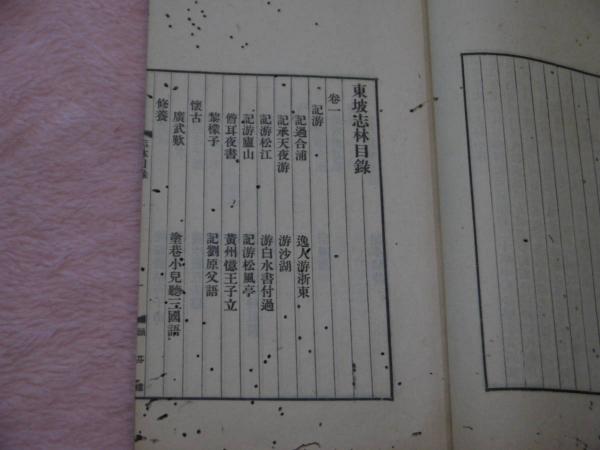 東坡志林目錄
卷一
記游
記過合浦 逸人游浙東
記承天夜游 游沙湖
記游松江 游白水書付過
記游廬山 記游松風亭
儋耳夜書 黃州憶王子立
黎檬子 記劉原父語
懷古
廣武歎 塗巷小兒聽三國語
修養
志林目錄
一